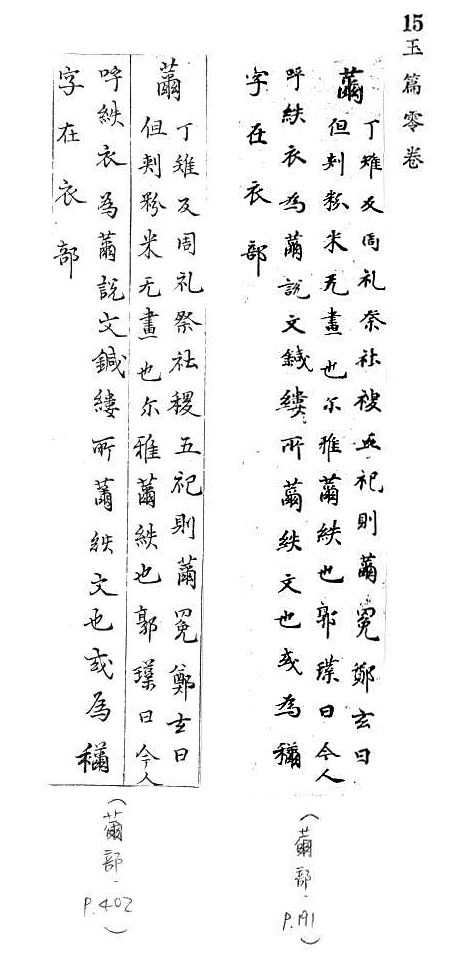 15玉篇零卷
黹
丁雉反周礼祭社稷五祀則黹冕鄭玄曰
但刾粉米无畫也尓雅黹紩也郭璞曰今人
呼紩衣為黹說文鍼縷所黹紩文也或為
字在衣部
(黹部 P.191)
黹
丁雉反周礼祭社稷五祀則黹冕鄭玄曰
但刾粉米无畫也尓雅黹紩也郭璞曰今人
呼紩衣為黹說文鍼縷所黹紩文也或為
字在衣部
(黹部 P.402)